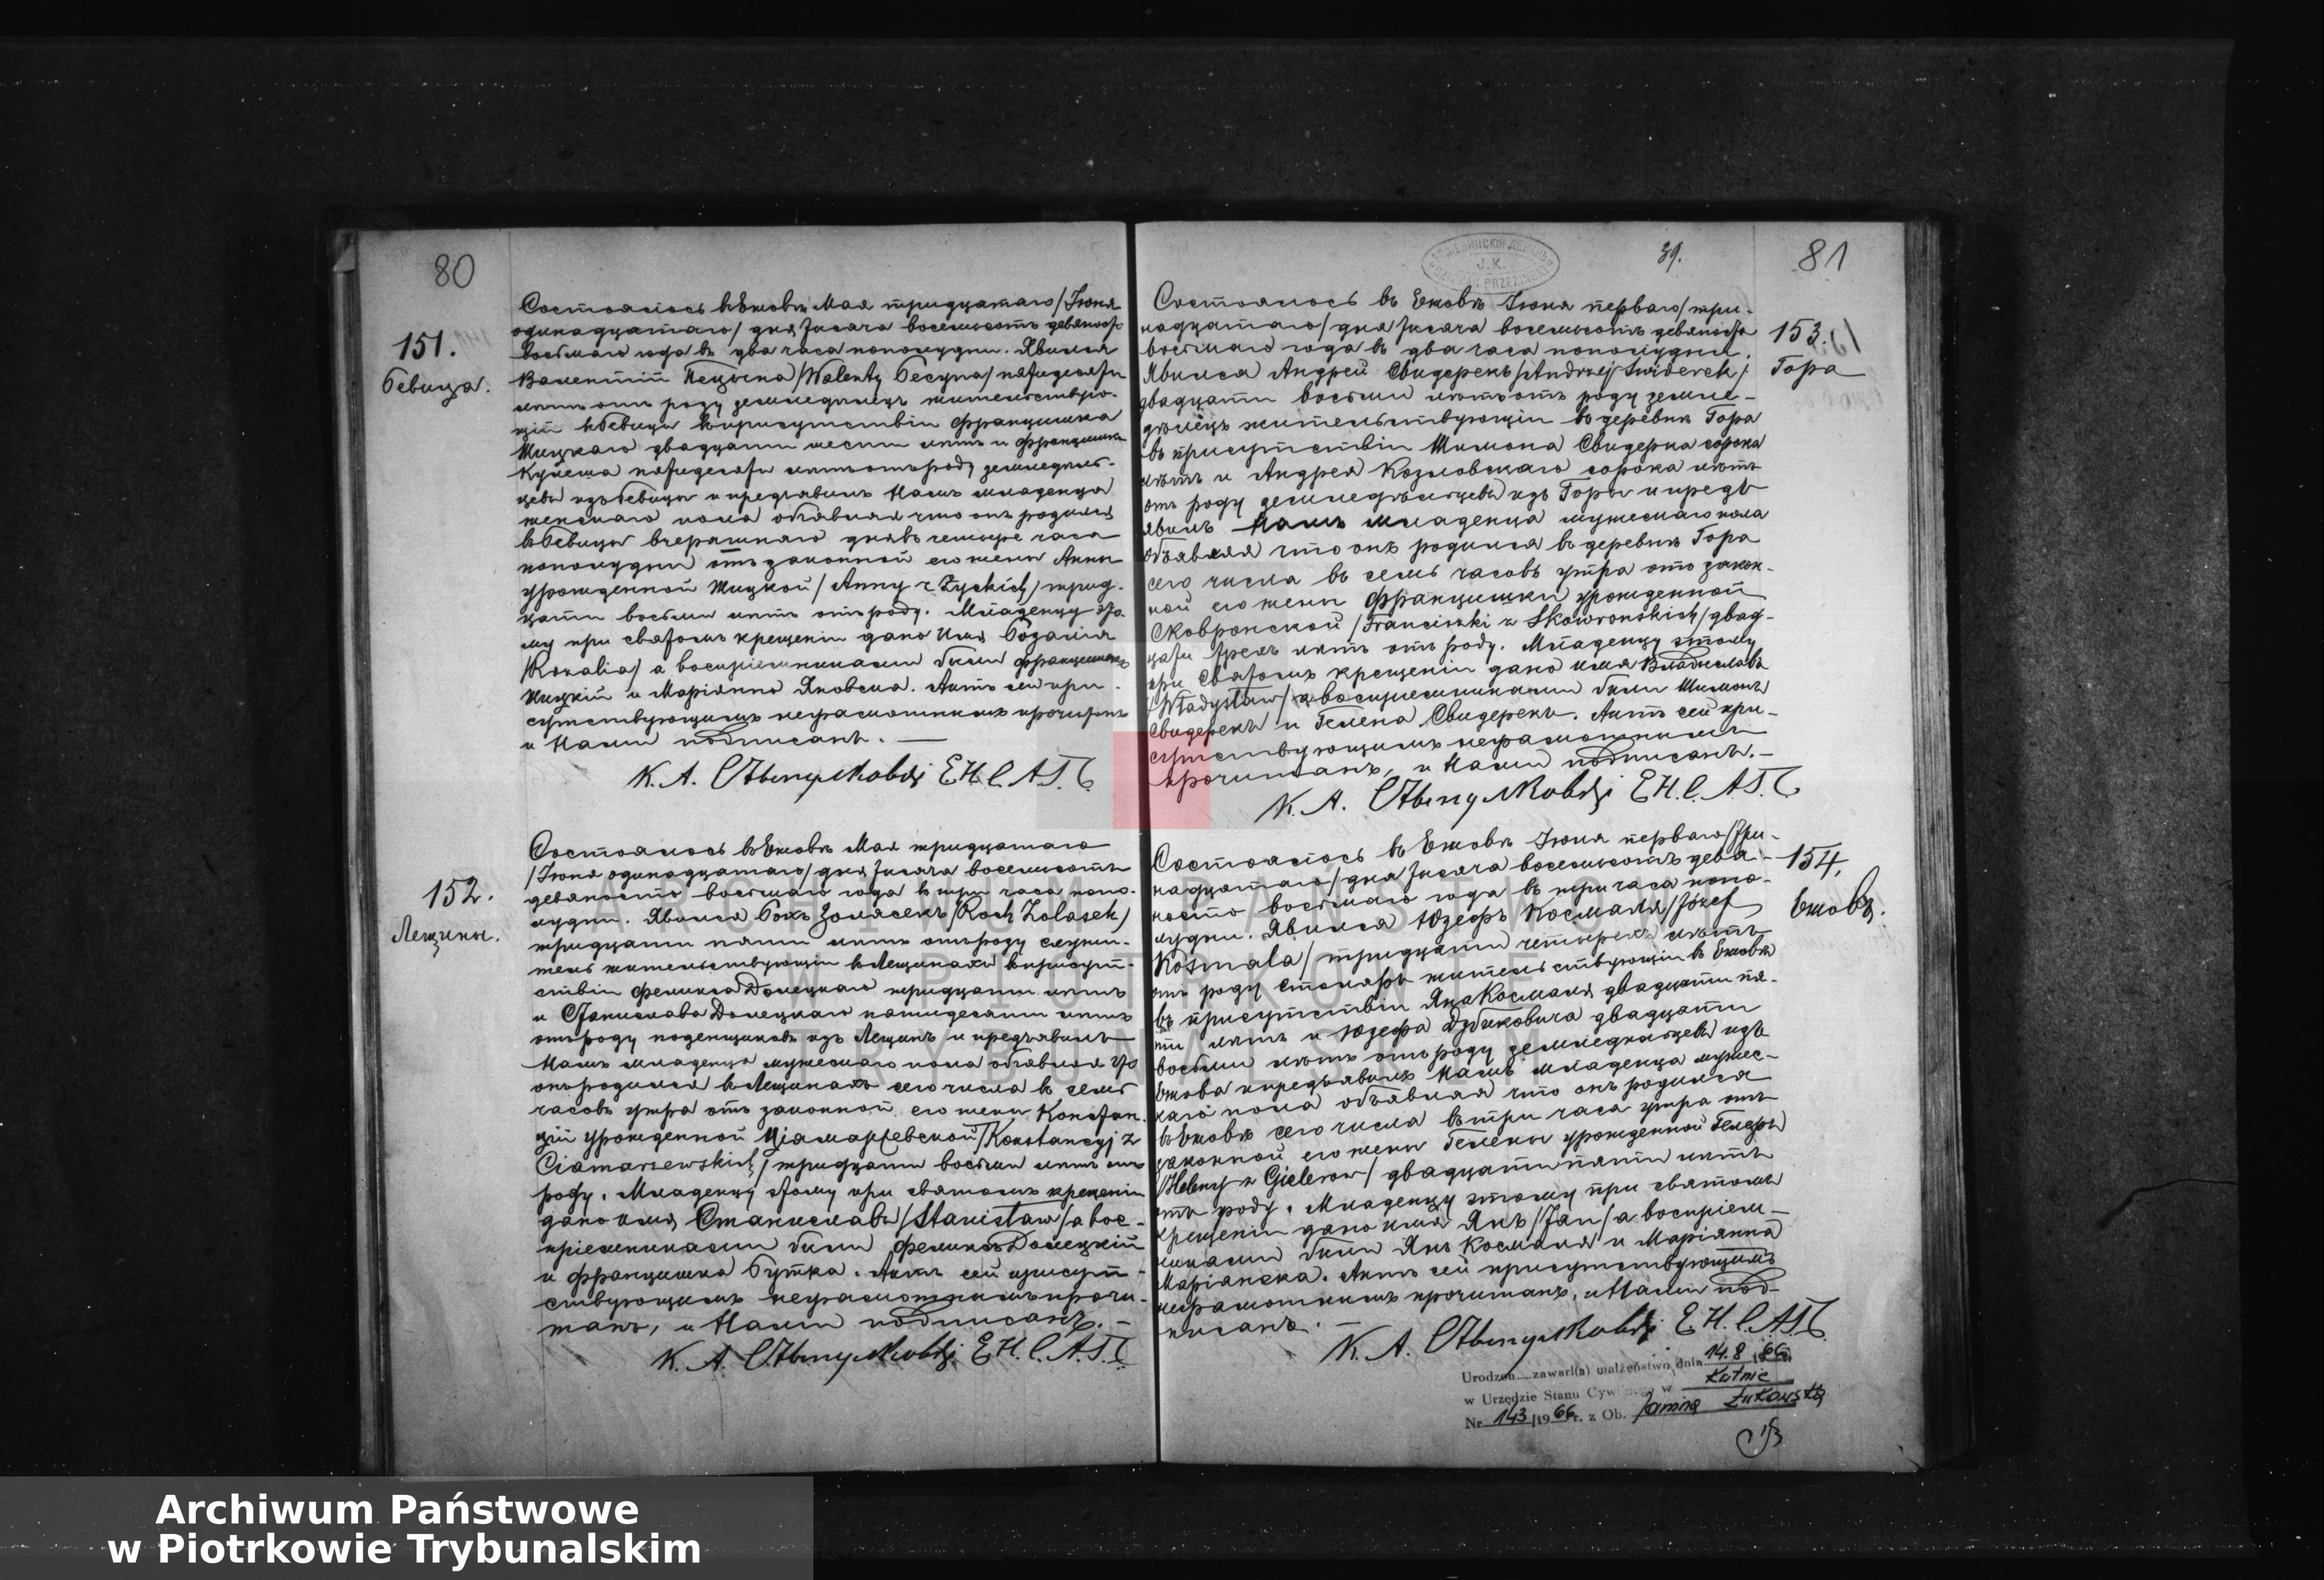 80
151.
Бевица.
Состоялось въ Ежовѣ Мая тридцатаго / Іюня
одинадцатаго / дня тысяча восемьсотъ девяносто
восьмаго года въ два часа пополудни. Явился
Валентій Пецына / Walenty Pecyna / пятидесяти
лѣтъ отъ роду земледѣлецъ жительствую-
щій въ Бевицы въ присутствіи Францишка
Жицкаго двадцати шести лѣтъ и Францишка
пятидесяти лѣтъ отъ роду земледѣль-
цевъ изъ Бевицы и предъявилъ Намъ младенца
женскаго пола объявляя что онъ родился
въ Бевицы вчерашняго дня въ четыре часа
пополудни отъ законной его жены Анны
урожденной Жицкой / Anny z Zyckich / трид-
цати восьми лѣтъ отъ роду. Младенцу это-
му при святомъ крещеніи дано имя Розалія
/ Rozalia / а воспріемниками были Францишекъ
Жицкій и Маріянна Яновска. Актъ сей при-
сутствующимъ неграмотнымъ прочитанъ
и Нами подписанъ. —
К. А. Е.Н.С.А.Г.С.
152.
Лещины.
Состоялось въ Ежовѣ Мая тридцатаго
/ Іюня одинадцатаго / дня тысяча восемьсотъ
девяносто восьмаго года въ три часа попо-
лудни. Явился Рохъ Золясекъ / Roch Zolasek /
тридцати пяти лѣтъ отъ роду служи-
тель жительствующій въ Лещинахъ въ присут-
ствіи Феликса Долецкаго тридцати лѣтъ
и Станислава Долецкаго пятидесяти лѣтъ
отъ роду поденщиковъ изъ Лещинъ и предъявилъ
Намъ младенца мужескаго пола объявляя что
онъ родился въ Лещинахъ сего числа въ семь
часовъ утра отъ законной его жены Констан-
ціи урожденной Цямаржевской / Konstancyj z
Ciamarzewskich / тридцати восьми лѣтъ отъ
роду. Младенцу этому при святомъ крещеніи
дано имя Станиславъ / Stanisław / а вос-
пріемниками были Феликсъ Долецкій
и Францишка Бутка. Актъ сей присут-
ствующимъ неграмотнымъ прочи-
танъ, и Нами подписанъ. —
К. А. Е.Н.С.А.Г.С.
39.
81
J. K.
153.
Гора
Состоялось въ Ежовѣ Іюня перваго / три-
надцатаго / дня тысяча восемьсотъ девяносто
восьмаго года въ два часа пополудни.
Явился Андрей Свидерекъ / Andrzej Swiderek /
двадцати восьми лѣтъ отъ роду земле-
дѣлецъ жительствующій въ деревнѣ Гора
въ присутствіи Шимона Свидерка сорока
лѣтъ и Андрея Козловскаго сорока лѣтъ
отъ роду земледѣльцевъ изъ Горы и предъ-
явилъ Намъ младенца мужескаго пола
объявляя что онъ родился въ деревнѣ Гора
сего числа въ семь часовъ утра отъ закон-
ной его жены Францишки урожденной
Сковронской / Franciszki z Skowronskich / двад-
цати трехъ лѣтъ отъ роду. Младенцу этому
при святомъ крещеніи дано имя Владиславъ
/ Władysław / а воспріемниками были Шимонъ
Свидерекъ и Гелена Свидерекъ. Актъ сей при-
сутствующимъ неграмотнымъ
прочитанъ, и Нами подписанъ. —
К. А. Е.Н.С.А.Г.С.
154.
Ежовъ.
Состоялось въ Ежовѣ Іюня перваго / три-
надцатаго / дня тысяча восемьсотъ девя-
носто восьмаго года въ три часа попо-
лудни. Явился Юзефъ Космаля / Józef
Kosmala / тридцати четырехъ лѣтъ
отъ роду столяръ жительствующій въ Ежовѣ
въ присутствіи Яна Космаля двадцати пя-
ти лѣтъ и Юзефа двадцати
восьми лѣтъ отъ роду земледѣльцевъ изъ
Ежова и предъявилъ Намъ младенца мужес-
каго пола объявляя что онъ родился
въ Ежовѣ сего числа въ три часа утра отъ
законной его жены Гелены урожденной Гелеръ
/ Heleny z Gielerow / двадцати пяти лѣтъ
отъ роду. Младенцу этому при святомъ
крещеніи дано имя Янъ / Jan / а воспріем-
никами были Янъ Космаля и Маріянна
Маріянска. Актъ сей присутствующимъ
неграмотнымъ прочитанъ, и Нами под-
писанъ. —
К. А. Е.Н.С.А.Г.С.
Urodzon zawarł(a) małżeństwo dnia 14.8 1966
w Urzędzie Stanu Cywilnego w Kutnie
Nr 143/1966r. z Ob. Janiną Żukowską
ARCHIWUM PAŃSTWOWE
W PIOTRKOWIE
TRYBUNALSKIM
Archiwum Państwowe
w Piotrkowie Trybunalskim